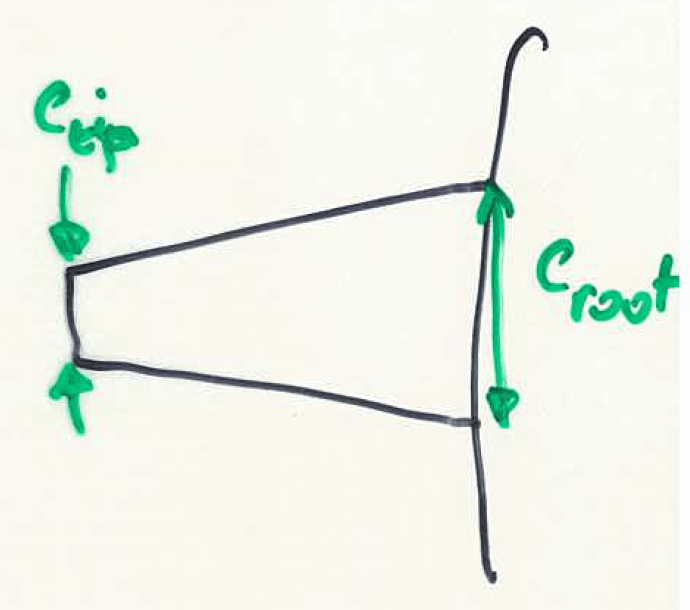 Ctip
Croot